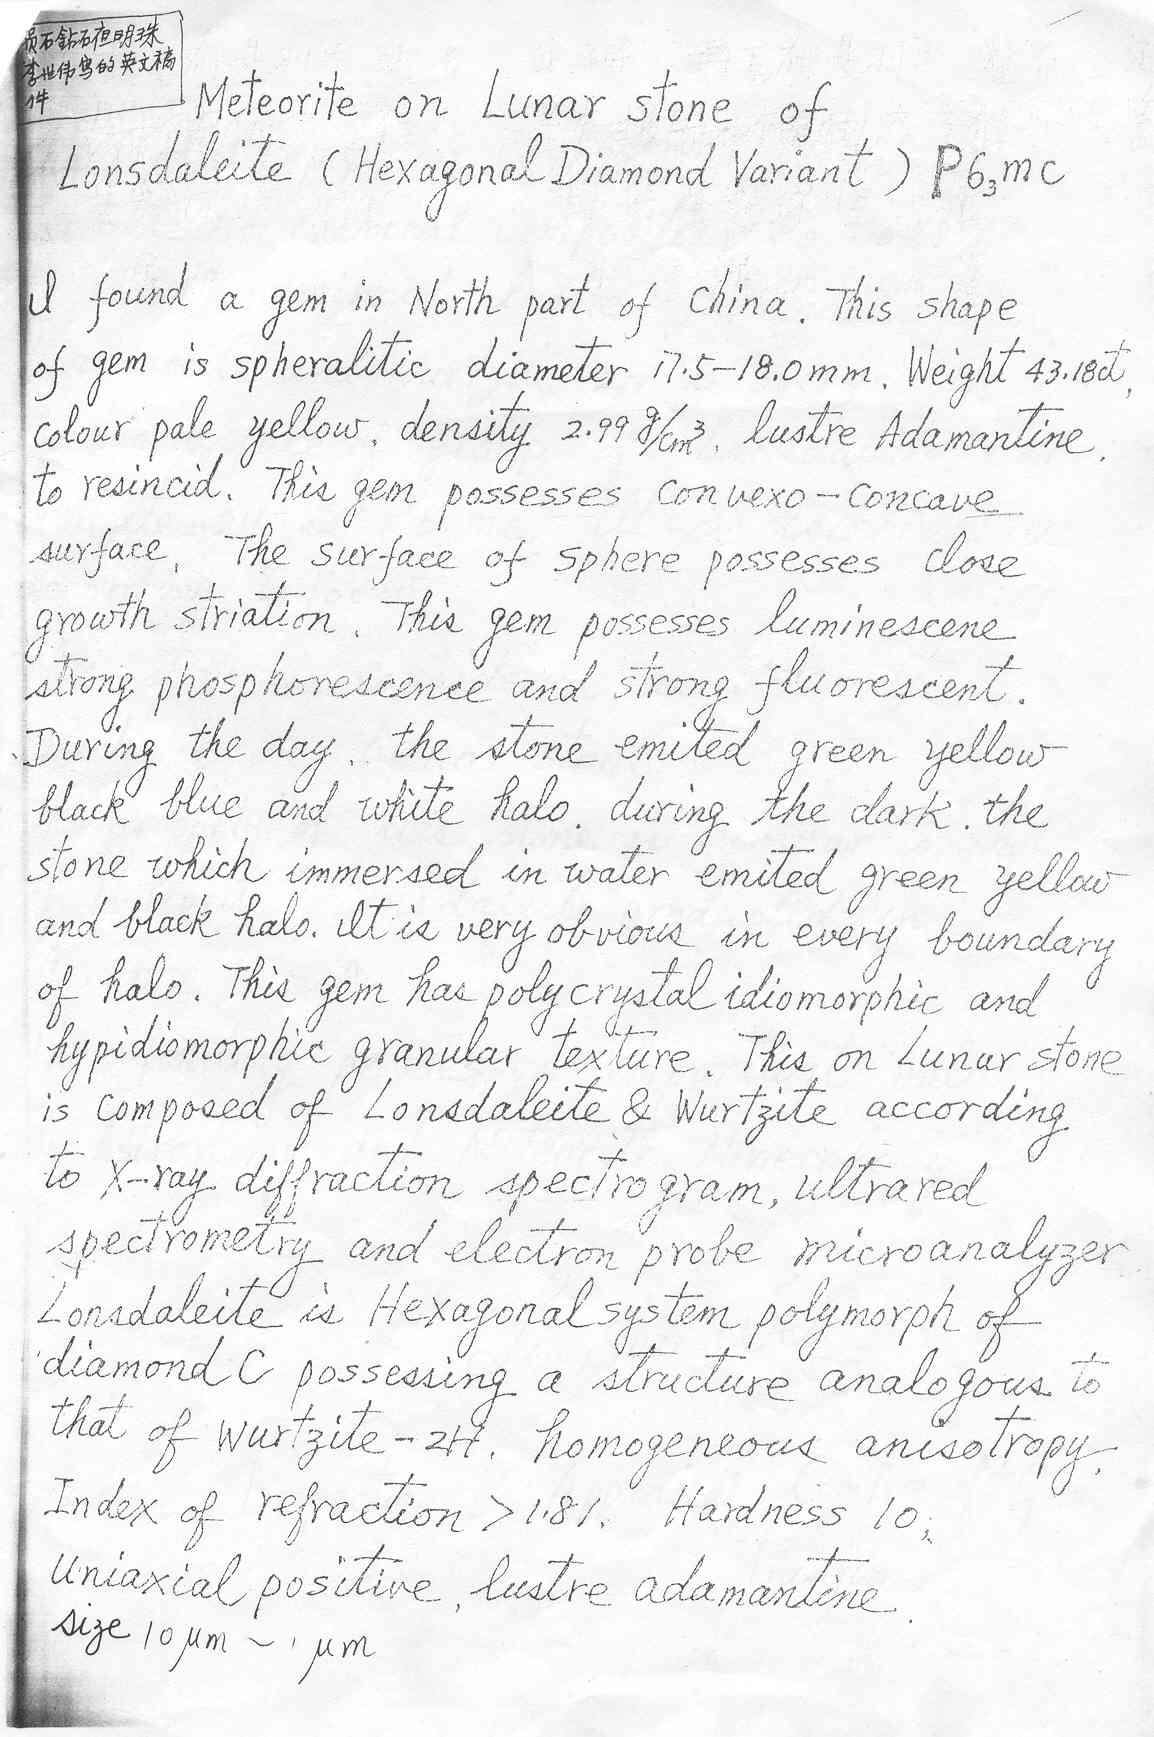 陨石钻石夜明珠
李世伟写的英文稿
件
Meteorite on Lunar stone of
Lonsdaleite (Hexagonal Diamond Variant) P6₃mc
I found a gem in North part of China. This shape
of gem is spheralitic diameter 17.5-18.0mm. Weight 43.18ct,
colour pale yellow, density 2.99 g/cm³, lustre Adamantine,
to resincid. This gem possesses convexo-concave
surface, The surface of sphere possesses close
growth striation. This gem possesses luminescene
strong phosphorescence and strong fluorescent.
During the day, the stone emited green yellow
black blue and white halo. during the dark. the
stone which immersed in water emited green yellow
and black halo. It is very obvious in every boundary
of halo. This gem has polycrystal idiomorphic and
hypidiomorphic granular texture. This on Lunar stone
is composed of Lonsdaleite & Wurtzite according
to X-ray diffraction spectrogram, ultrared
spectrometry and electron probe microanalyzer
Lonsdaleite is Hexagonal system polymorph of
diamond C possessing a structure analogous to
that of wurtzite-2H. homogeneous anisotropy,
Index of refraction >1.81. Hardness 10;
Uniaxial positive, lustre adamantine.
size 10 μm ~ 1 μm